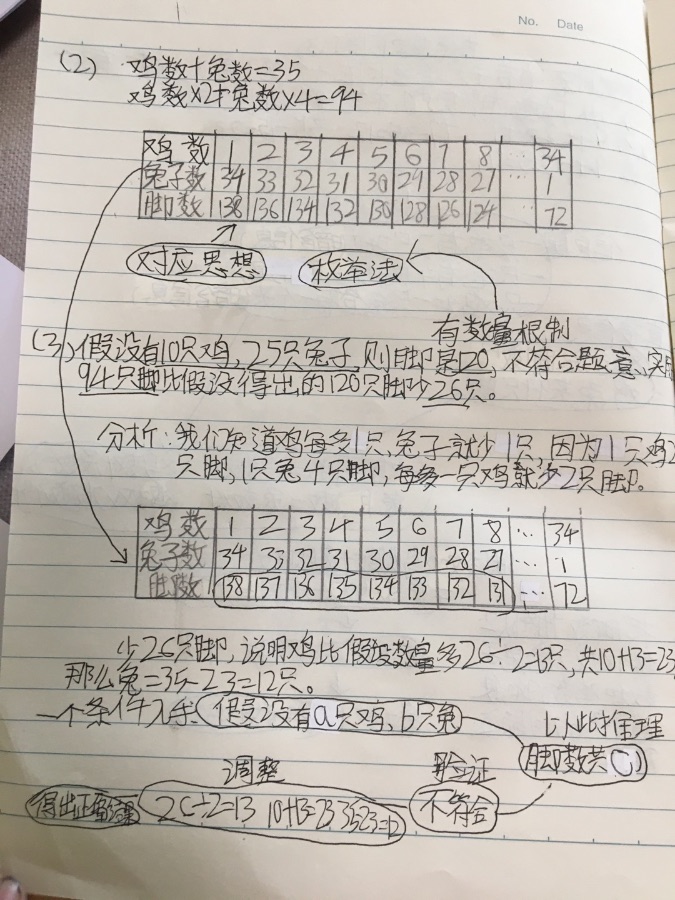 No. Date
(2) 鸡数+兔数=35
鸡数×2+兔数×4=94
鸡数 1 2 3 4 5 6 7 8 … 34
兔子数 34 33 32 31 30 29 28 27 … 1
脚数 138 136 134 132 130 128 126 124 … 72
对应思想 枚举法
有数量限制
(3) 假设有10只鸡,25只兔子,则脚是120,不符合题意、实际
94只脚比假设得出的120只脚少26只。
分析:我们知道鸡每多1只,兔子就少1只,因为1只鸡2
只脚,1只兔4只脚,每多一只鸡就少2只脚。
鸡数 1 2 3 4 5 6 7 8 … 34
兔子数 34 33 32 31 30 29 28 27 … 1
脚数 138 137 136 135 134 133 132 131 … 72
少26只脚,说明鸡比假设数量多26÷2=13只,共10+13=23
那么兔=35-23=12只。
一个条件入手 假设有a只鸡、b只兔
以此推理
脚数共()
调整 验证
得出正确结果 26÷2=13 10+13=23 35-23=12 不符合